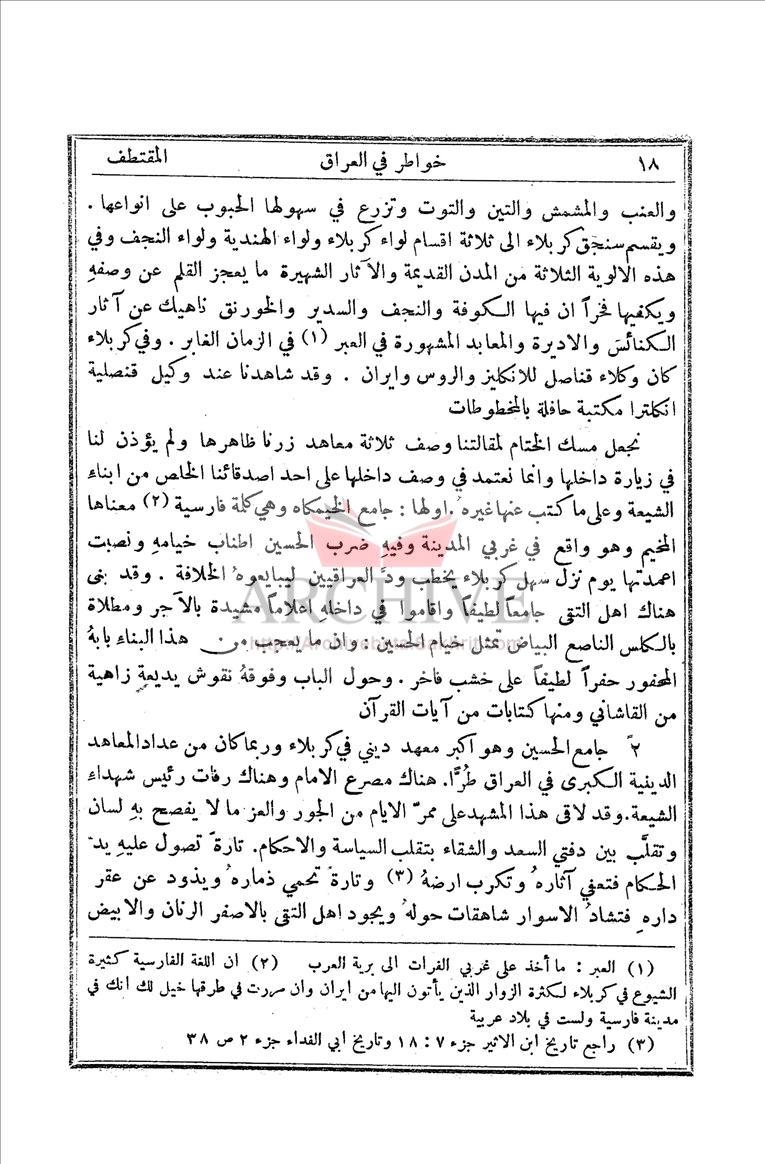 ١٨ خواطر في العراق المقتطف
والعنب والمشمش والتين والتوت وتزرع في سهولها الحبوب على انواعها .
ويقسم سنجق كربلاء الى ثلاثة اقسام لواء كربلاء ولواء الهندية ولواء النجف وفي
هذه الالوية الثلاثة من المدن القديمة والآثار الشهيرة ما يعجز القلم عن وصفهِ
ويكفيها فخراً ان فيها الكوفة والنجف والسدير والخورنق ناهيك عن آثار
الكنائس والاديرة والمعابد المشهورة في العبر (١) في الزمان الغابر . وفي كربلاء
كان وكلاء قناصل للانكليز والروس وايران . وقد شاهدنا عند وكيل قنصلية
انكلترا مكتبة حافلة بالمخطوطات
نجعل مسك الختام لمقالتنا وصف ثلاثة معاهد زرنا ظاهرها ولم يؤذن لنا
في زيارة داخلها وانما نعتمد في وصف داخلها على احد اصدقائنا الخلص من ابناء
الشيعة وعلى ما كتب عنها غيره . اولها : جامع الخيمكاه وهي كلمة فارسية (٢) معناها
المخيم وهو واقع في غربي المدينة وفيهِ ضرب الحسين اطناب خيامهِ ونصبت
اعمدتها يوم نزل سهل كربلاء يخطب ودَّ العراقيين ليبايعوهُ الخلافة . وقد بنى
هناك اهل التقى جامعاً لطيفاً واقاموا في داخلهِ اعلاماً مشيدة بالآجر ومطلاة
بالكلس الناصع البياض تمثل خيام الحسين . وان ما يعجب من هذا البناء بابهُ
المحفور حفراً لطيفاً على خشب فاخر . وحول الباب وفوقهُ نقوش بديعة زاهية
من القاشاني ومنها كتابات من آيات القرآن
٢ً جامع الحسين وهو اكبر معهد ديني في كربلاء وربما كان من عداد المعاهد
الدينية الكبرى في العراق طُرًّا. هناك مصرع الامام وهناك رفات رئيس شهداء
الشيعة. وقد لاقى هذا المشهد على ممرّ الايام من الجور والعز ما لا يفصح بهِ لسان
وتقلَّب بين دفتي السعد والشقاء بتقلب السياسة والاحكام. تارة تصول عليهِ يد
الحكام فتعفي آثارهُ وتكرب ارضهُ (٣) وتارة تحمي ذمارهُ ويذود عن عقر
دارهِ فتشادُ الاسوار شاهقات حولهُ ويجود اهل التقى بالاصفر الرنان والابيض
(١) العبر : ما أخذ على غربي الفرات الى برية العرب (٢) ان اللغة الفارسية كثيرة
الشيوع في كربلاء لكثرة الزوار الذين يأتون اليها من ايران وان مررت في طرقها خيل لك انك في
مدينة فارسية ولست في بلاد عربية
(٣) راجع تاريخ ابن الاثير جزء ٧ : ١٨ وتاريخ ابي الفداء جزء ٢ ص ٣٨
ARCHIVE